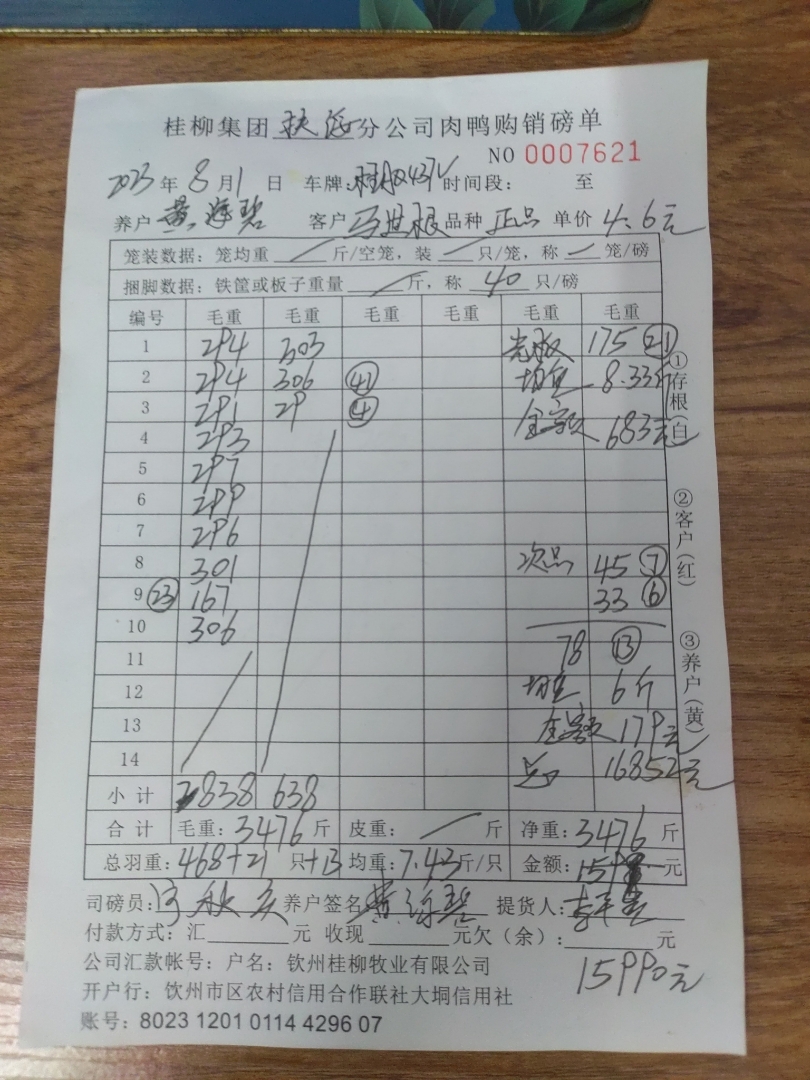 桂柳集团 扶海 分公司肉鸭购销磅单
NO 0007621
2023 年 8 月 1 日 车牌: 时间段: 至
养户 黄海碧 客户 马世根 品种 正品 单价 4.6元
笼装数据: 笼均重 / 斤/空笼, 装 / 只/笼, 称 / 笼/磅
捆脚数据: 铁筐或板子重量 / 斤, 称 40 只/磅
编号 毛重 毛重 毛重 毛重 毛重 毛重
1 294 303 光板 175 21
2 294 306 41 均重 8.33斤
3 291 29 4 金额 683元
4 293
5 297
6 299
7 296
8 301 次品 45 7
9 23 167 33 6
10 306
11 78 13
12 均重 6斤
13 金额 179元
14 总 16852元
小计 2838 638
合计 毛重: 3476 斤 皮重: / 斤 净重: 3476 斤
总羽重: 468+21 只+13 均重: 7.43斤/只 金额: 元
司磅员: 养户签名 黄海碧 提货人:
付款方式: 汇 元 收现 元欠(余): 元
公司汇款帐号: 户名: 钦州桂柳牧业有限公司
15990元
开户行: 饮州市区农村信用合作联社大垌信用社
账号: 8023 1201 0114 4296 07
①存根(白)
②客户(红)
③养户(黄)